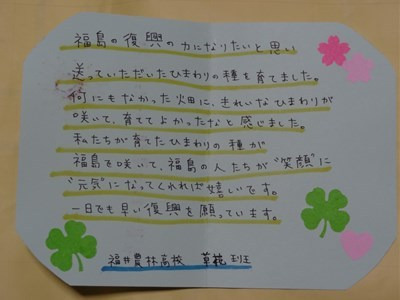 福島の復興の力になりたいと思い
送っていただいたひまわりの種を育てました。
何にもなかった畑に、きれいなひまわりが
咲いて、育ててよかったなと感じました。
私たちが育てたひまわりの種が
福島を咲いて、福島の人たちが"笑顔"に
"元気"になってくれれば嬉しいです。
一日でも早い復興を願っています。
福井農林高校 草花班